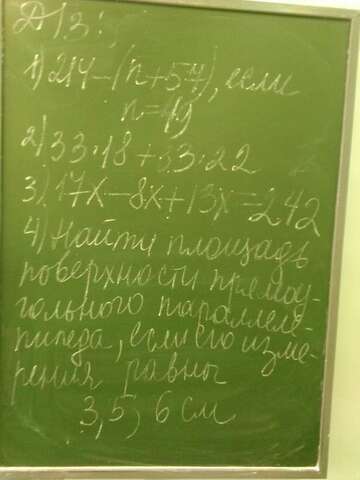 Д/З:
1) 214-(n+57), если
n=49
2) 33·18+33·22
3) 17x-8x+13x=242
4) Найти площадь
поверхности прямоу-
гольного параллеле-
пипеда, если его изме-
рения равны
3, 5, 6 см